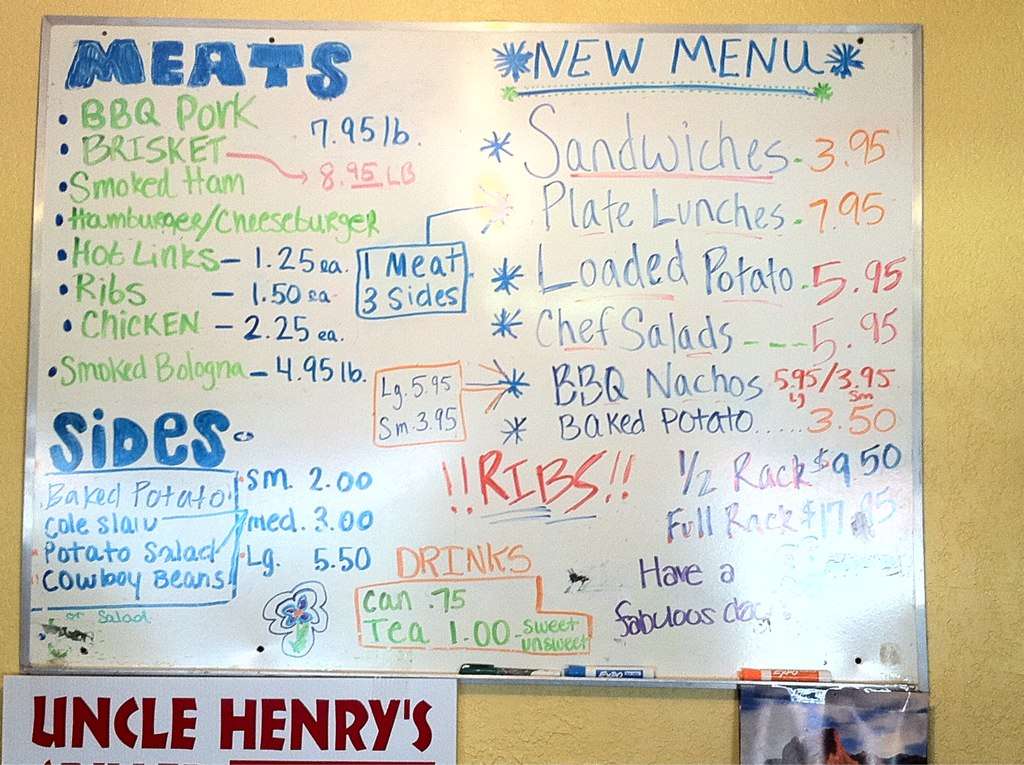 MEATS
• BBQ Pork
7.95 lb.
• BRISKET
8.95 LB
• Smoked Ham
• Hamburger/Cheeseburger
• Hot Links – 1.25 ea.
• Ribs – 1.50 ea
• CHICKEN – 2.25 ea.
• Smoked Bologna – 4.95 lb.
SiDES
Baked Potato
Cole Slaw
Potato Salad
Cowboy Beans
or Salad
Sm. 2.00
med. 3.00
Lg. 5.50
*NEW MENU*
* Sandwiches - 3.95
Plate Lunches - 7.95
1 Meat
3 Sides
* Loaded Potato - 5.95
* Chef Salads ---- 5.95
* BBQ Nachos 5.95/3.95
Lg Sm
Lg. 5.95
Sm. 3.95
* Baked Potato...... 3.50
!!RIBS!!
1/2 Rack $9.50
Full Rack $17.95
DRINKS
Can .75
Tea 1.00 - sweet
unsweet
Have a
fabulous day
EXPO
EXPO
UNCLE HENRY'S